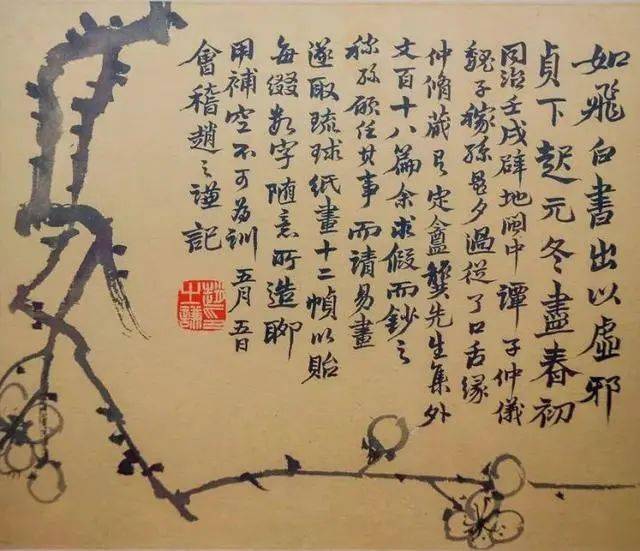 如飛白書出以虛邪
貞下起元冬盡春初
同治壬戌辟地閩中譚子仲儀
魏子稼孫晨夕過從了口舌緣
仲脩藏有定盦龔先生集外
文百十八篇余求假而鈔之
稼孫願任其事而請易畫
遂取琉球紙畫十二幀以貽
每綴數字隨意所造聊
用補空不可為訓 五月五日
會稽趙之謙記
趙之謙